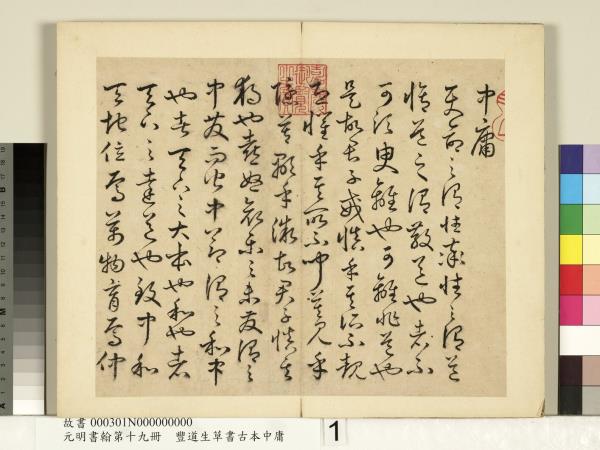 中庸
天命之謂性率性之謂道
脩道之謂教道也者不
可須臾離也可離非道也
是故君子戒慎乎其所不覩
恐懼乎其所不聞莫見乎
隱莫顯乎微故君子慎其
獨也喜怒哀樂之未發謂之
中發而皆中節謂之和中
也者天下之大本也和也者
天下之達道也致中和
天地位焉萬物育焉仲
故書 000301N000000000
元明書翰第十九冊 豐道生草書古本中庸
1